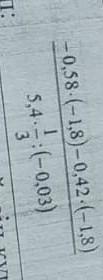 -0,58·(-1,8)-0,42·(-1,8)
5,4·1/3:(-0,03)